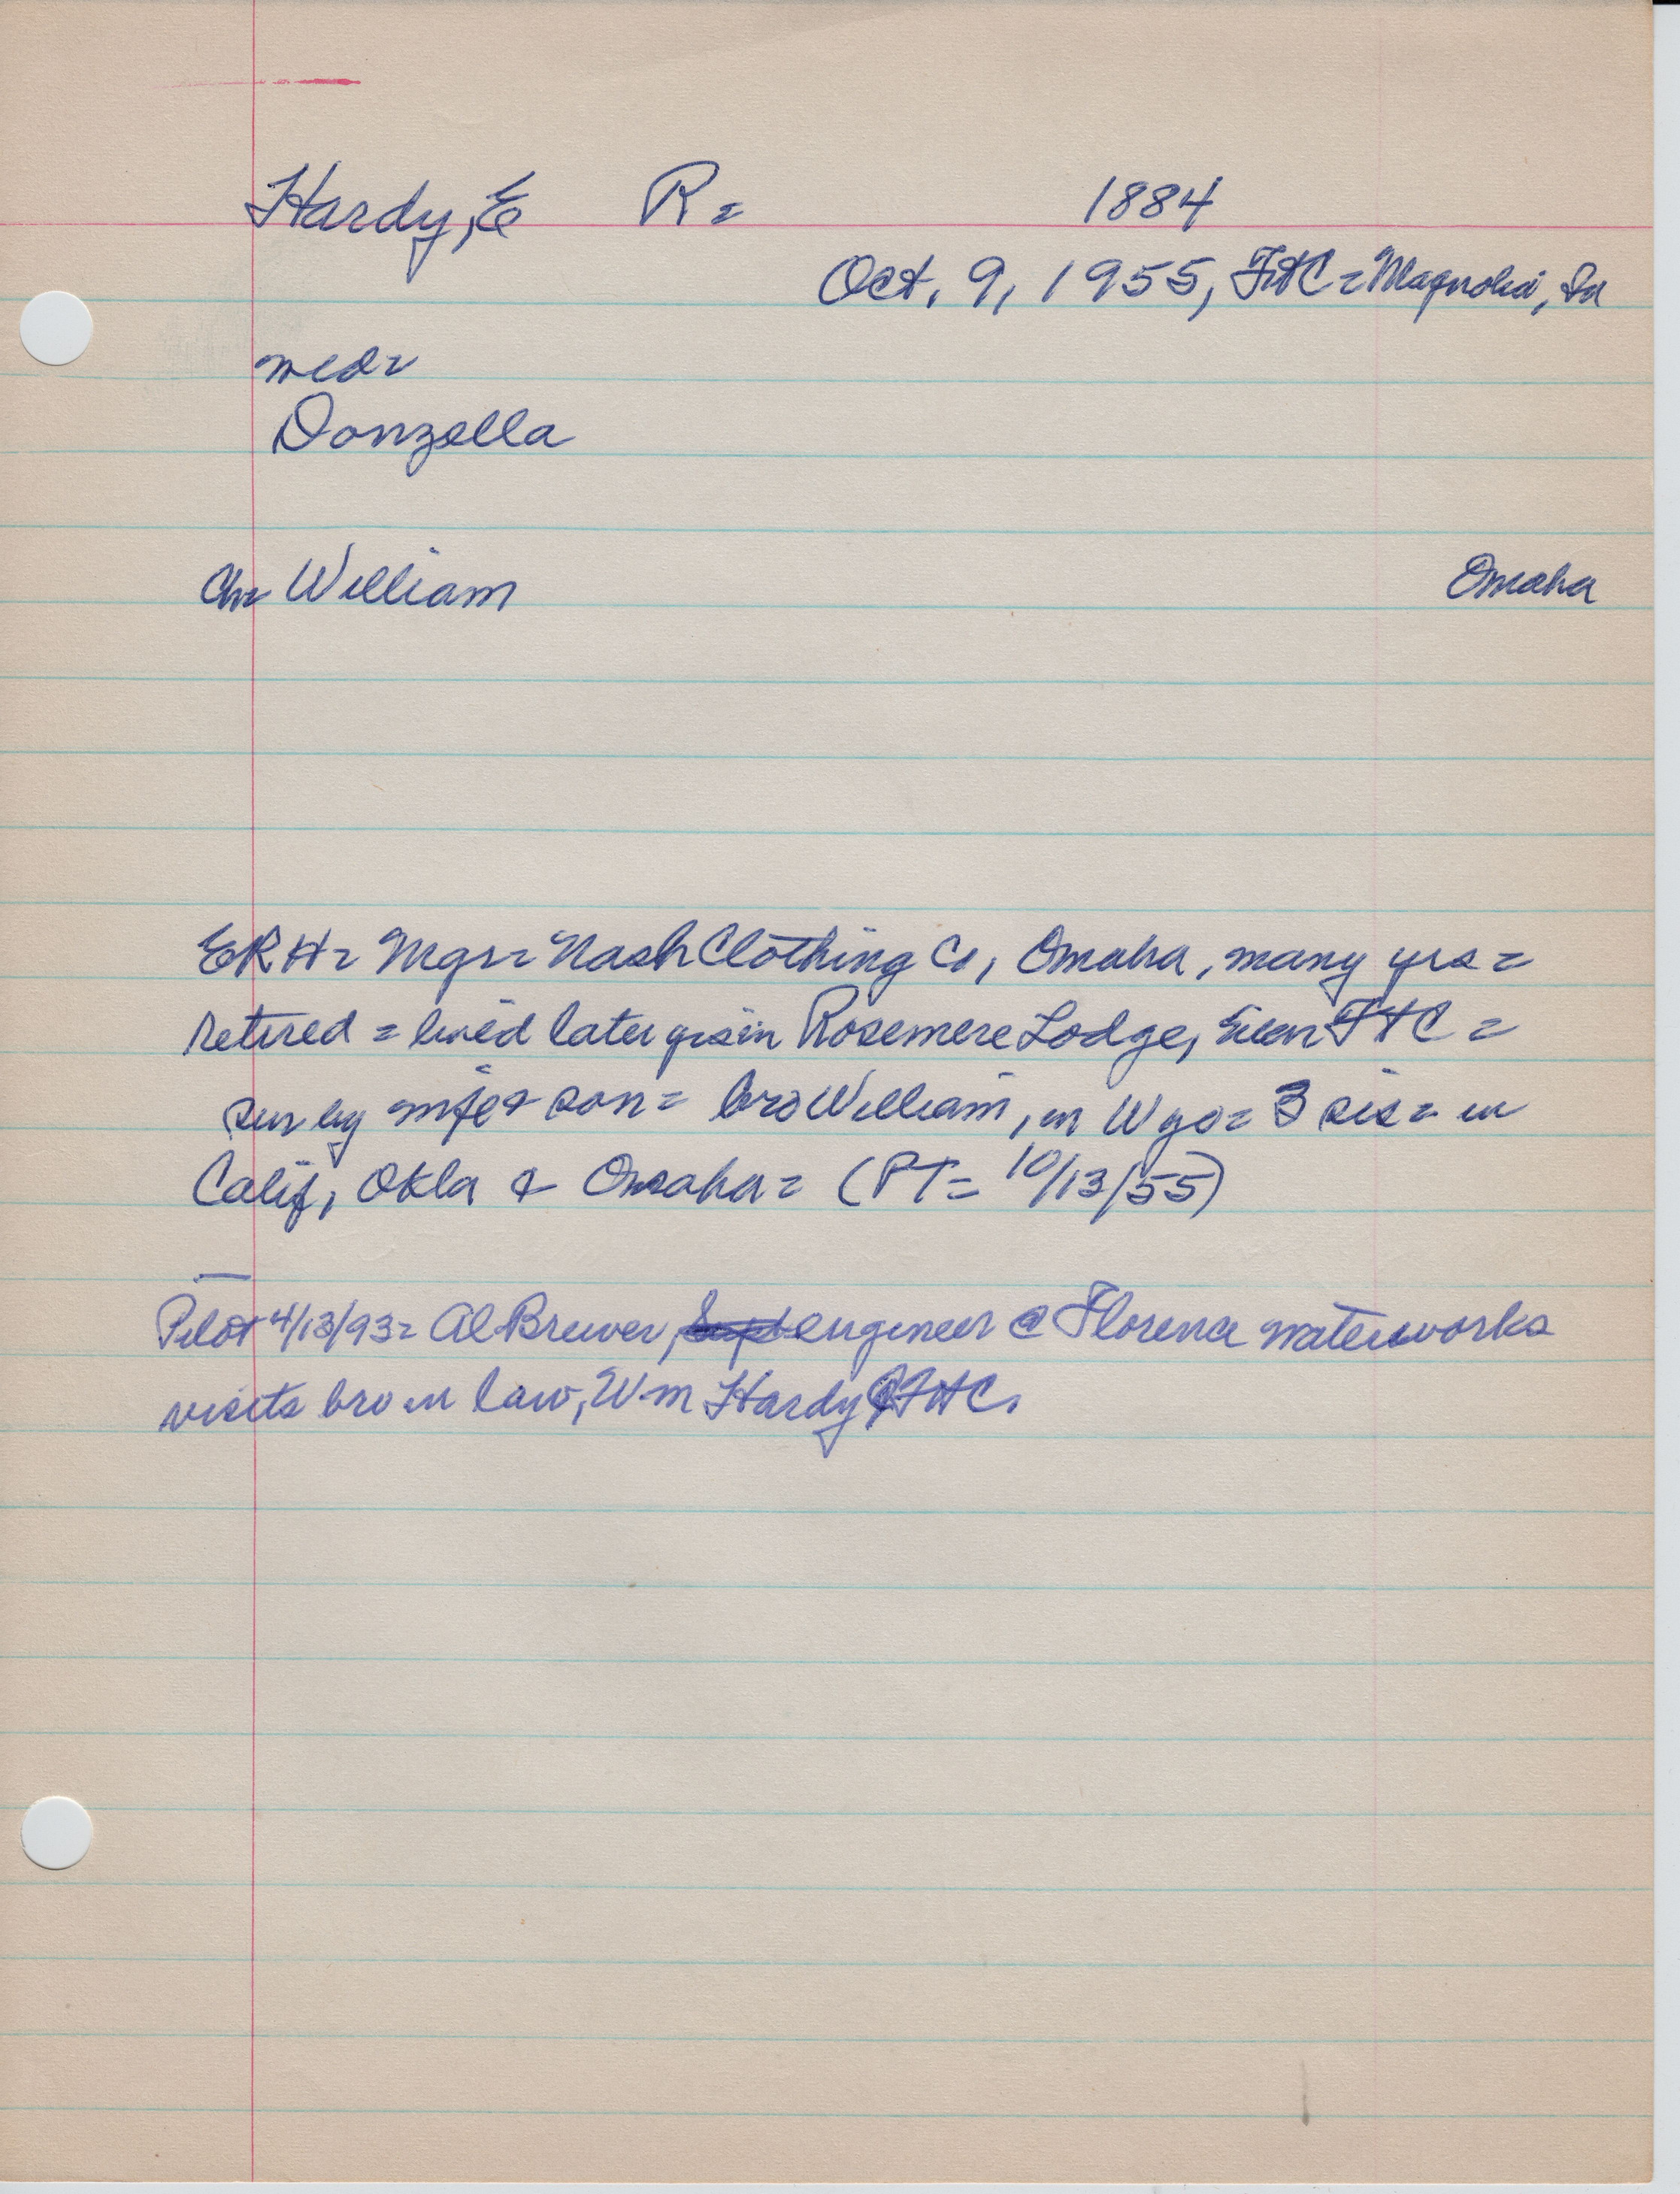 Hardy, E R = 1884
Oct. 9, 1955, FtC = Magnolia, Ia
wed =
Donzella
Ch = William Omaha
ERH = Mgr = Nash Clothing Co, Omaha, many yrs =
retired = lived later yrs in Rosemere Lodge, near FtC =
sur by wife & son = bro William, in Wyo = 3 sis = in
Calif, Okla & Omaha = (PT = 10/13/55)
Pilot 4/13/93 = Al Brewer, Supt engineer @ Florence waterworks
visits bro in law, Wm Hardy FtC.